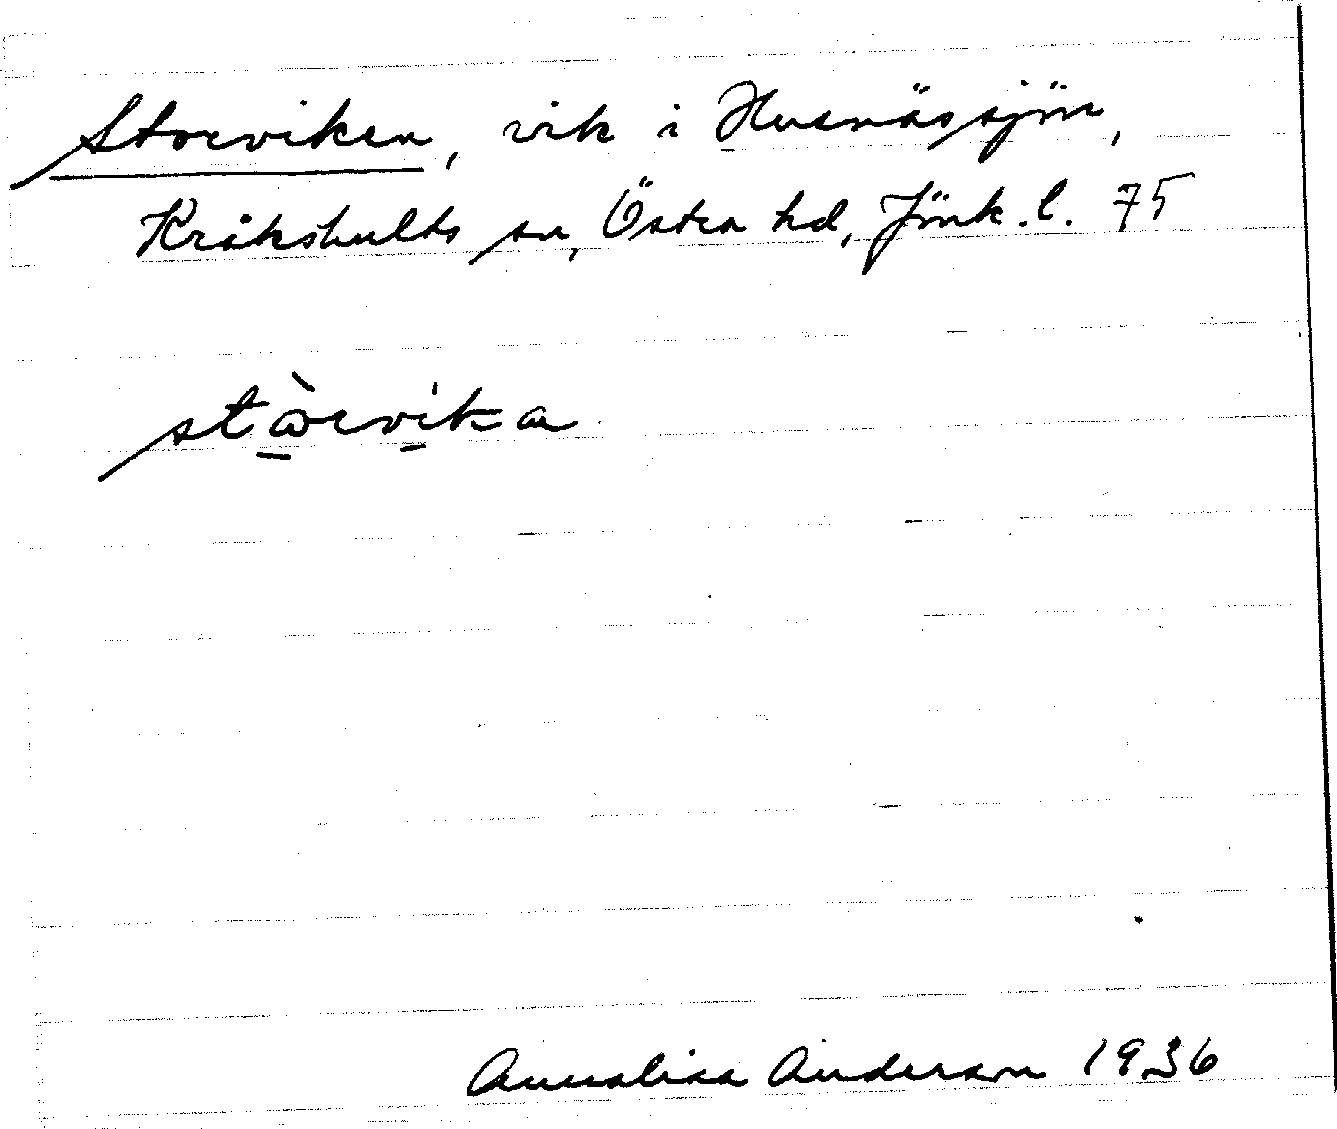 Storviken, vik i Husnässjön,
Kråkshults sn, Östra hd, Jönk. l. 75
stòrvika
Annalisa Anderson 1936